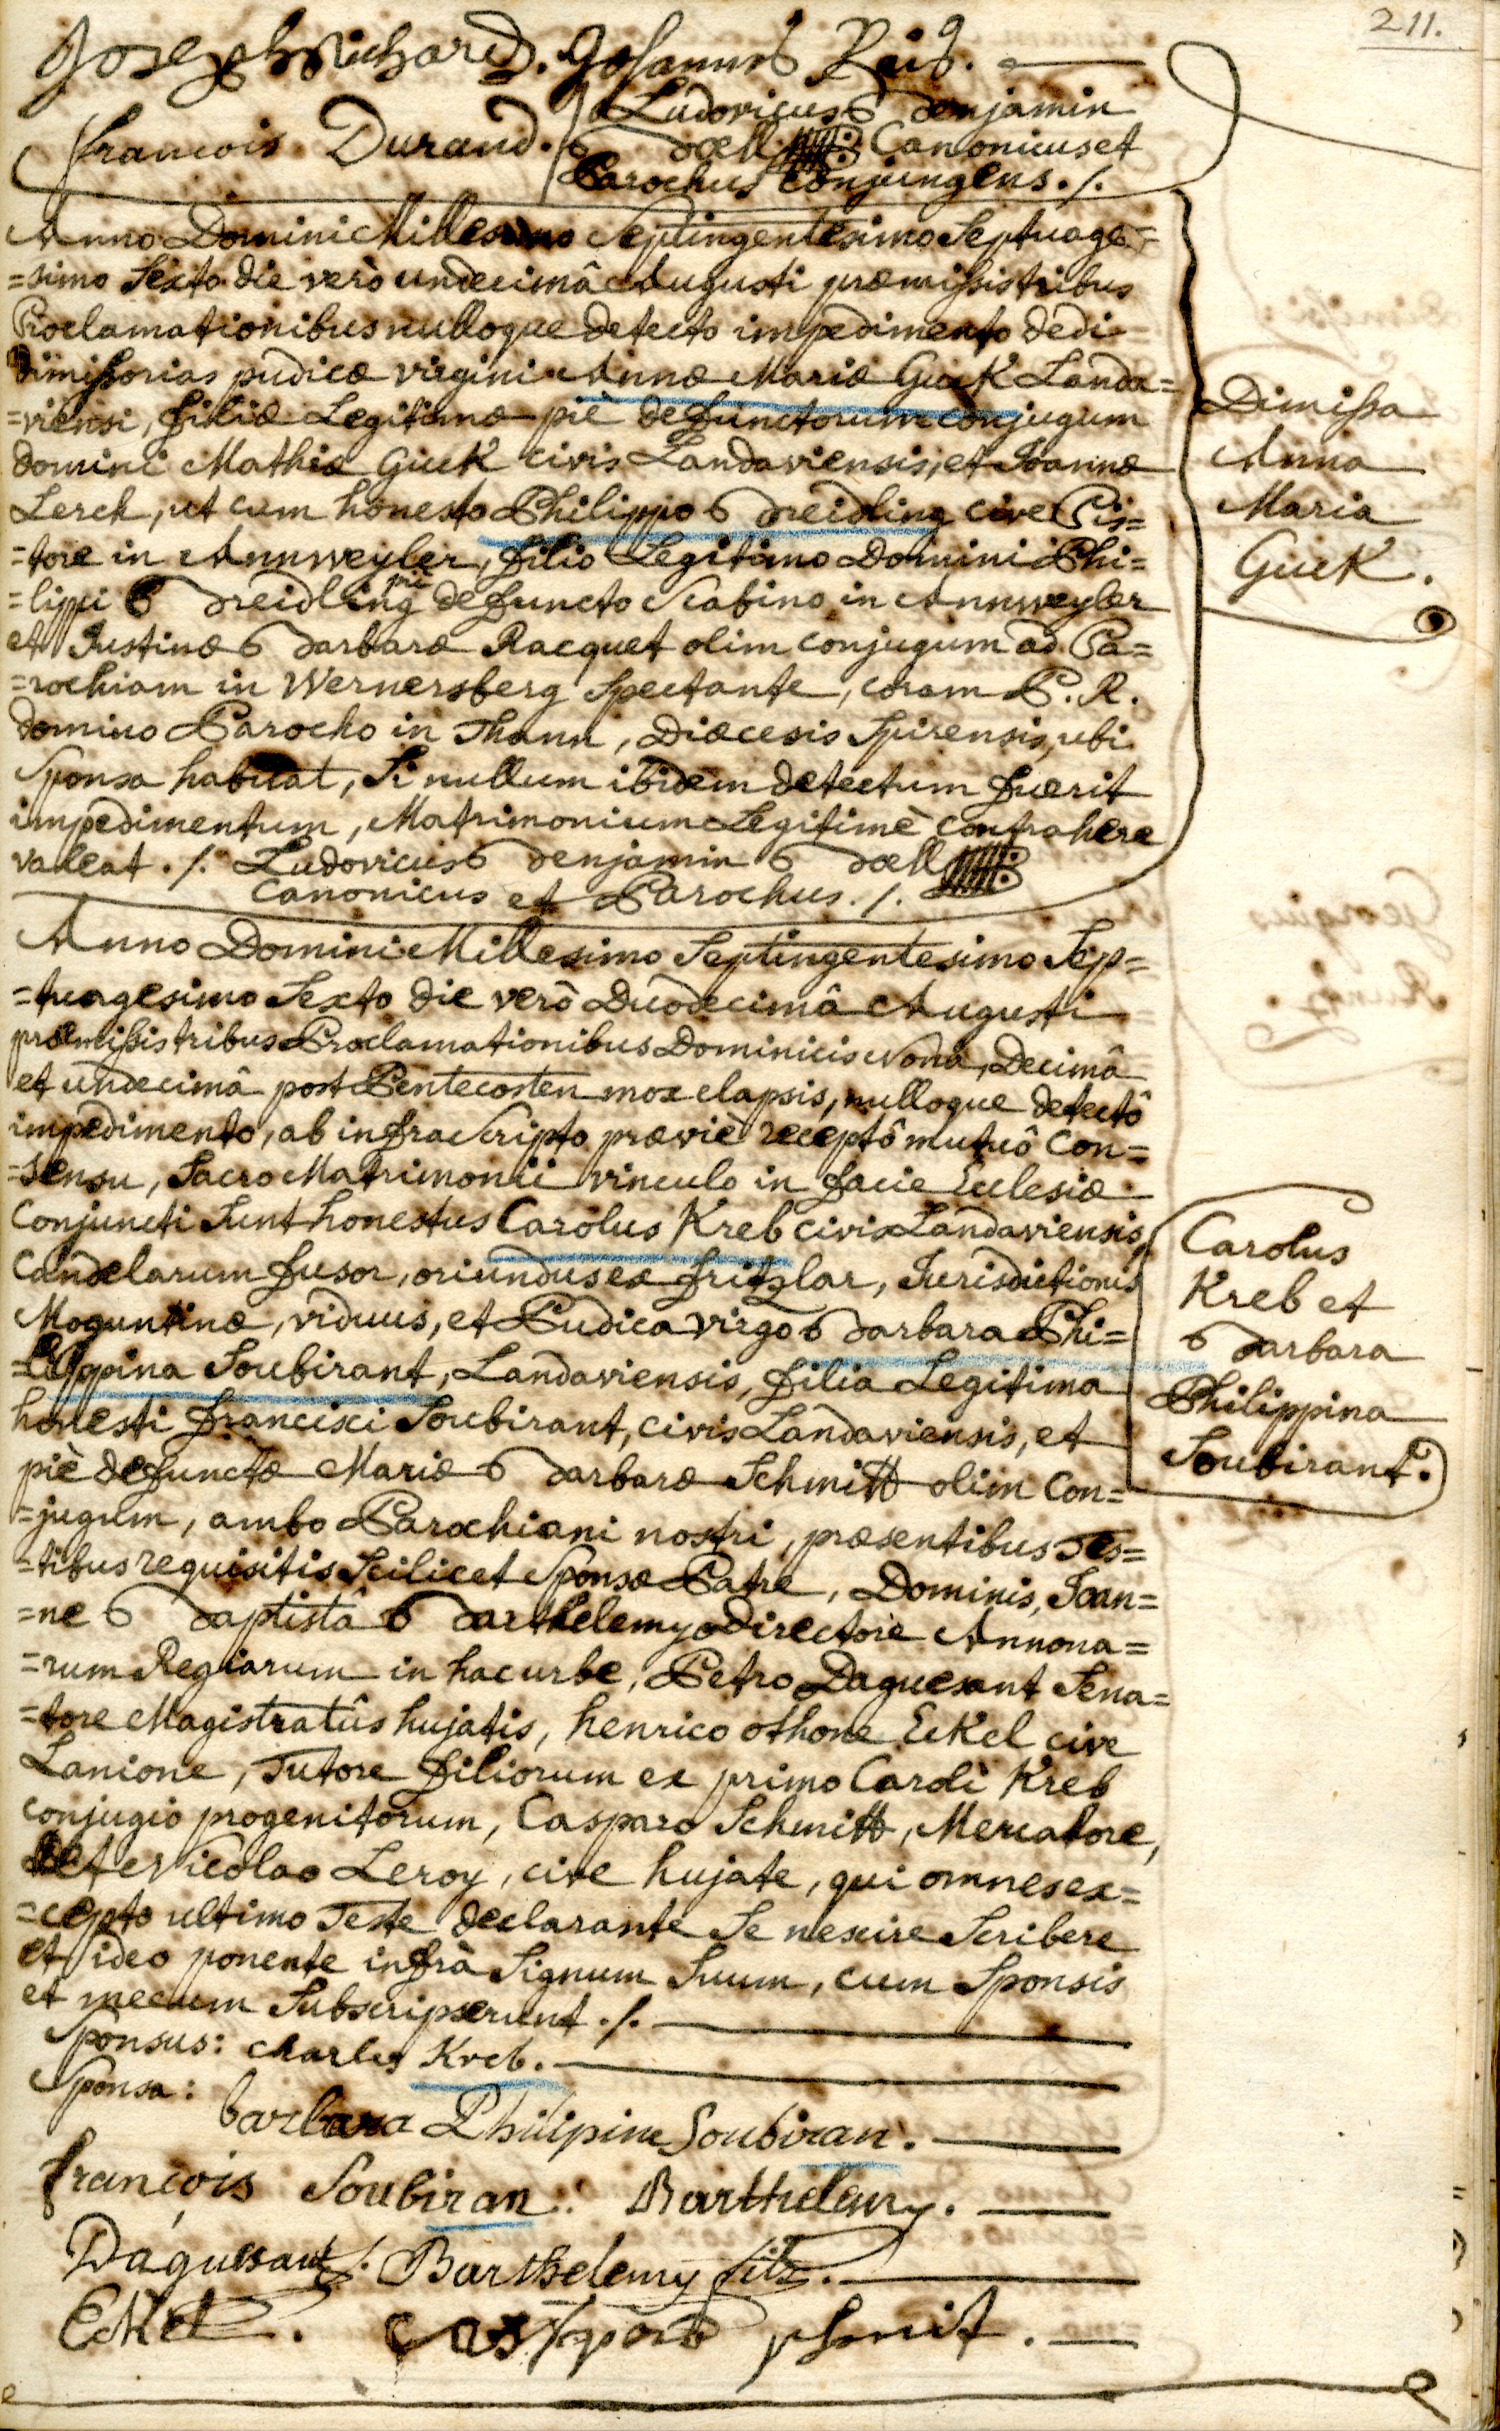 211.
Joseph Richard. Johannes Reis.
francois Durand. Ludovicus Benjamin
Boell Canonicus et
Parochus Conjungens ./.
Anno Domini Millesimo Septingentesimo Septuage=
=simo Sexto die verò undecimâ Augusti præmissis tribus
Proclamationibus nulloque detecto impedimento dedi
dimissorias pudicæ virgini Annæ Mariæ Guck Landa=
=viensi, filiæ Legitimæ piè defunctorum conjugum
domini Mathiæ Guck civis Landaviensis, et Joannæ
Lerch, ut cum honesto Philippo Breidling cive Pis=
=tore in Annweyler, filio Legitimo Domini Phi=
=lippi Breidling piè defuncto Scabino in Annweyler
et Justinæ Barbaræ Racquet olim conjugum ad Pa=
=rochiam in Wernersberg Spectante, coram P. R.
domino Parocho in Thann, Diœcesis Spirensis, ubi
Sponsa habitat, Si nullum ibidem detectum fuerit
impedimentum, Matrimonium Legitimè contrahere
valeat ./. Ludovicus Benjamin Boell
Canonicus et Parochus ./.
Dimissa
Anna
Maria
Guck.
Anno Domini Millesimo Septingentesimo Sep=
=tuagesimo Sexto die verò Duodecimâ Augusti
præmissis tribus Proclamationibus Dominicis Nonâ, Decimâ
et undecimâ post Pentecosten mox elapsis, nulloque detectô
impedimento, ab infra Scripto præviè receptô mutuô Con=
=sensu, Sacro Matrimonii vinculo in facie Ecclesiæ
Conjuncti Sunt honestus Carolus Kreb civis Landaviensis,
Candelarum fusor, oriundus ex fritzlar, Jurisdictionis
Moguntinæ, viduus, et Pudica virgo Barbara Phi=
=lippina Soubirant, Landaviensis, filia Legitima
honesti francisci Soubirant, civis Landaviensis, et
piè defunctæ Mariæ Barbaræ Schmitt olim Con=
=jugum, ambo Parochiani nostri, præsentibus Tes=
=tibus requisitis Scilicet Sponsæ Patre, Dominis, Joan=
=ne Baptistâ Barthelemy Directore Annona=
=rum Regiarum in hac urbe, Petro Daguesant Sena=
=tore Magistratûs hujatis, henrico othone Eckel cive
Lanione, Tutore filiorum ex primo Caroli Kreb
conjugio progenitorum, Casparo Schmitt, Mercatore,
et Nicolao Leroy, cive hujate, qui omnes ex=
=cepto ultimo Teste declarante Se nescire Scribere
et ideo ponente infrà Signum Suum, cum Sponsis
et mecum Subscripserunt ./.
Carolus
Kreb et
Barbara
Philippina
Soubirant.
Sponsus: charles Kreb.
Sponsa: barbara Philipine Soubiran.
françois Soubiran. Barthelemy.
Daguesant ./. Barthelemy fils.
Eckel. casspar schmit.